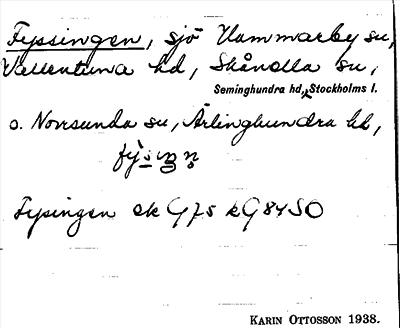 Fyssingen, sjö Hammarby sn,
Vallentuna hd, Skånella sn,
Seminghundra hd, Stockholms l.
o. Norrsunda sn, Ärlinghundra hd,
Fysingen ek G75 kG84SO
KARIN OTTOSSON 1938.